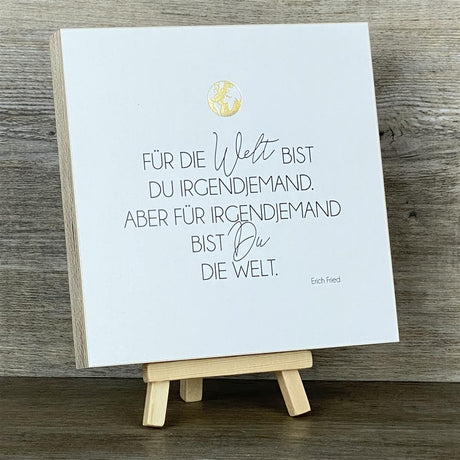 FÜR DIE Welt BIST
DU IRGENDJEMAND.
ABER FÜR IRGENDJEMAND
BIST Du
DIE WELT.
Erich Fried